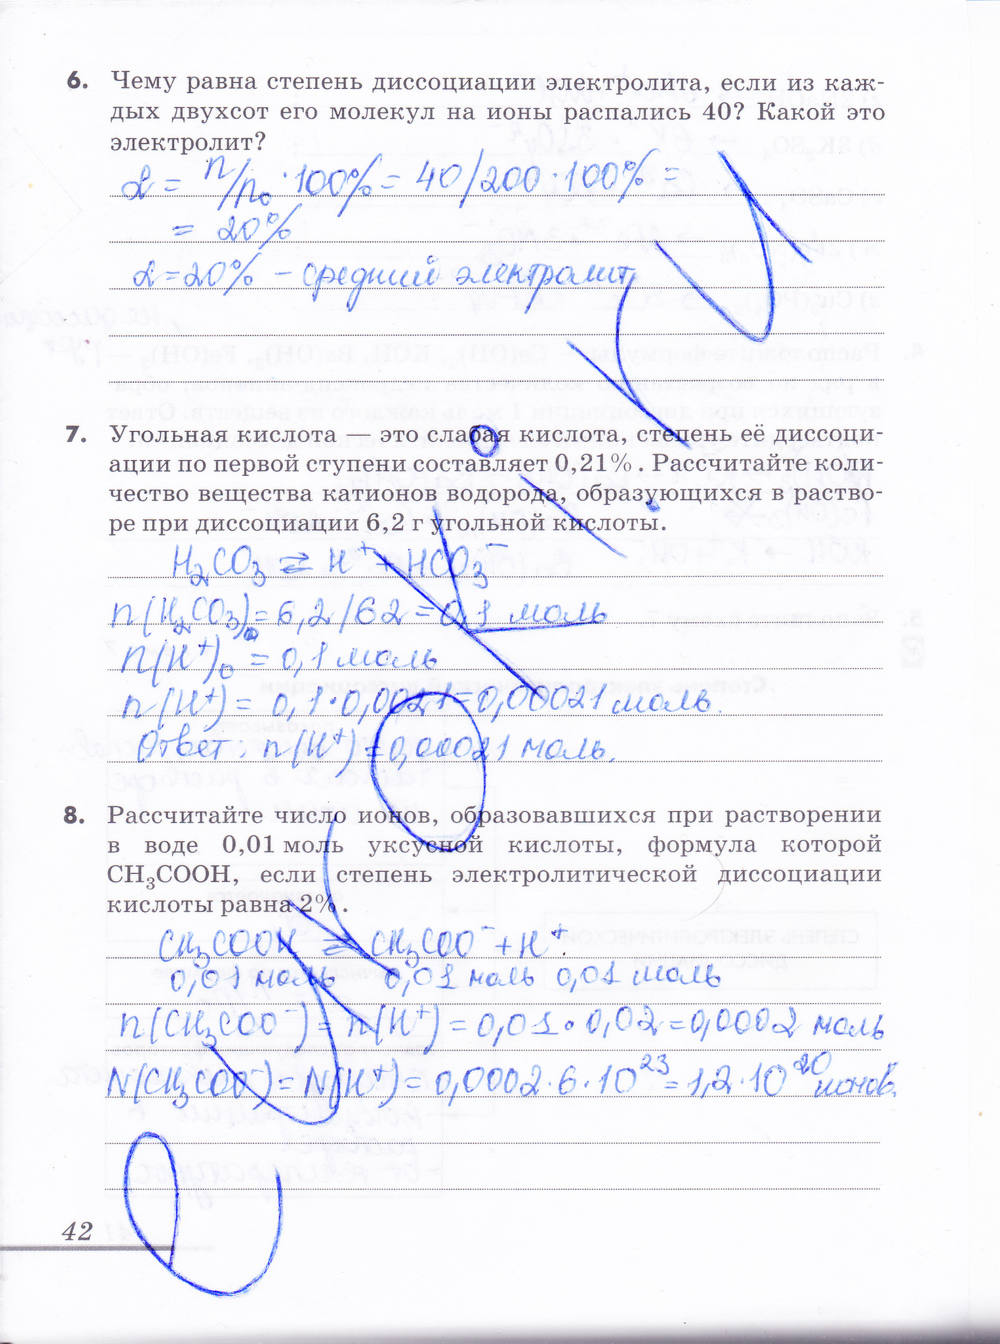 6. Чему равна степень диссоциации электролита, если из каж-
дых двухсот его молекул на ионы распались 40? Какой это
электролит?
α = n/n₀ · 100% = 40/200 · 100% =
= 20%
α = 20% – средний электролит
7. Угольная кислота — это слабая кислота, степень её диссоци-
ации по первой ступени составляет 0,21%. Рассчитайте коли-
чество вещества катионов водорода, образующихся в раство-
ре при диссоциации 6,2 г угольной кислоты.
H₂CO₃ ⇄ H⁺ + HCO₃⁻
n(H₂CO₃)₀ = 6,2/62 = 0,1 моль
n(H⁺)₀ = 0,1 моль
n(H⁺) = 0,1 · 0,0021 = 0,00021 моль.
Ответ: n(H⁺) = 0,00021 моль.
8. Рассчитайте число ионов, образовавшихся при растворении
в воде 0,01 моль уксусной кислоты, формула которой
CH₃COOH, если степень электролитической диссоциации
кислоты равна 2%.
CH₃COOH ⇄ CH₃COO⁻ + H⁺.
0,01 моль 0,01 моль 0,01 моль
n(CH₃COO⁻) = n(H⁺) = 0,01 · 0,02 = 0,0002 моль
N(CH₃COO⁻) = N(H⁺) = 0,0002 · 6 · 10²³ = 1,2 · 10²⁰ ионов.
42